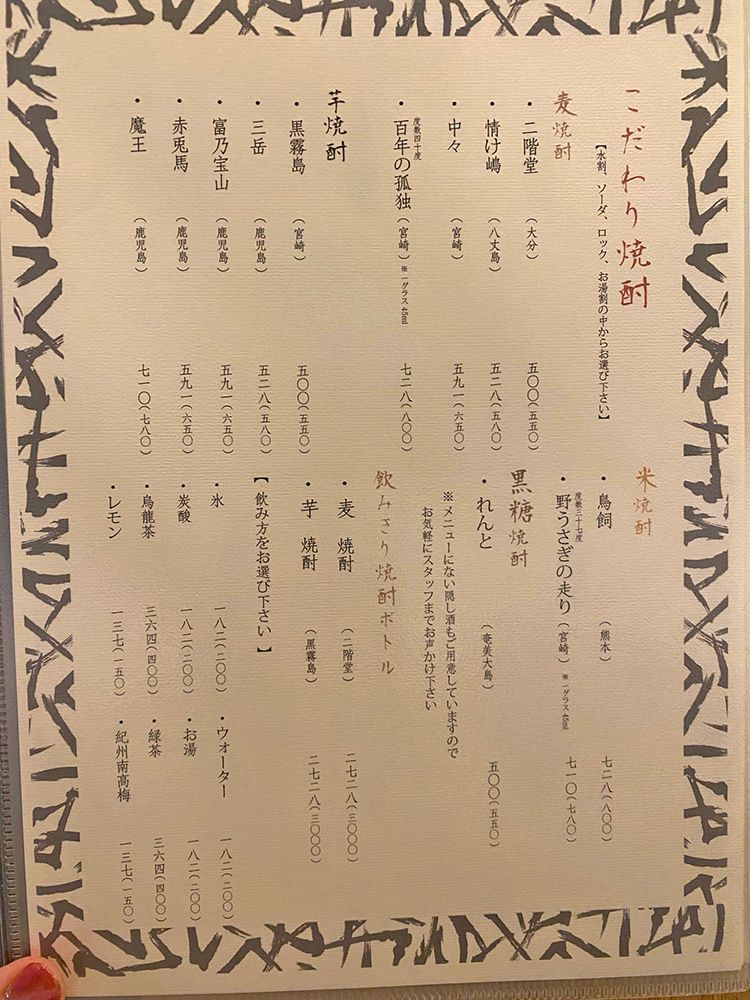 こだわり焼酎
【水割、ソーダ、ロック、お湯割の中からお選び下さい】
麦焼酎
・二階堂（大分）五〇〇（五五〇）
・情け嶋（八丈島）五二八（五八〇）
・中々（宮崎）五九一（六五〇）
度数四十度
・百年の孤独（宮崎）※一グラス45ml 七二八（八〇〇）
芋焼酎
・黒霧島（宮崎）五〇〇（五五〇）
・三岳（鹿児島）五二八（五八〇）
・富乃宝山（鹿児島）五九一（六五〇）
・赤兎馬（鹿児島）五九一（六五〇）
・魔王（鹿児島）七一〇（七八〇）
米焼酎
・鳥飼（熊本）七二八（八〇〇）
度数三十七度
・野うさぎの走り（宮崎）※一グラス45ml 七一〇（七八〇）
黒糖焼酎
・れんと（奄美大島）五〇〇（五五〇）
※メニューにない隠し酒もご用意していますので
お気軽にスタッフまでお声かけ下さい
飲みきり焼酎ボトル
・麦 焼酎（二階堂）二七二八（三〇〇〇）
・芋 焼酎（黒霧島）二七二八（三〇〇〇）
【飲み方をお選び下さい】
・氷 一八二（二〇〇）・ウォーター 一八二（二〇〇）
・炭酸 一八二（二〇〇）・お湯 一八二（二〇〇）
・烏龍茶 三六四（四〇〇）・緑茶 三六四（四〇〇）
・レモン 一三七（一五〇）・紀州南高梅 一三七（一五〇）